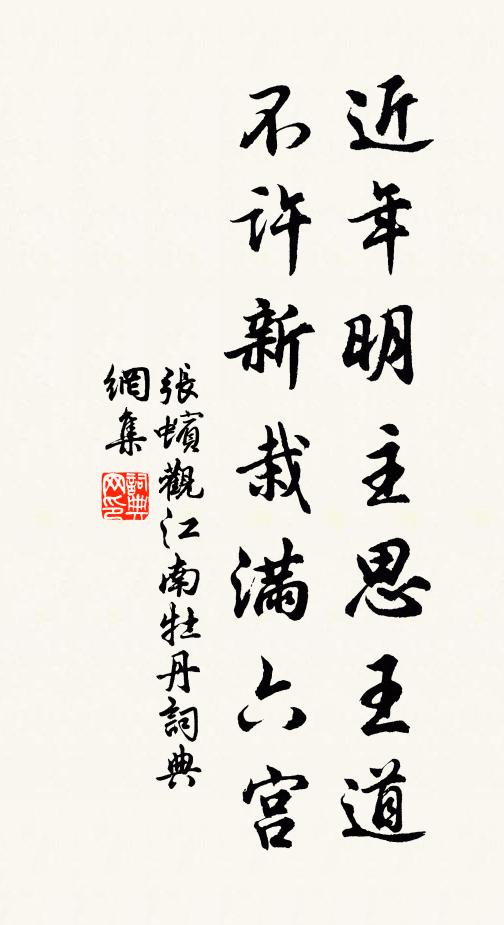 近年明主思王道
不许新栽满六宫
張蠙觀江南牡丹詞典
網集
詞典
网印